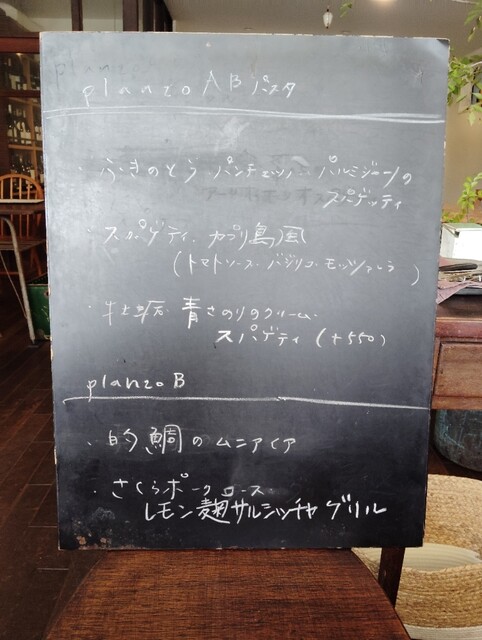 planzo A B パスタ
・ふきのとう パンチェッタ パルミジャーノの
スパゲッティ
・スパゲティ カプリ島風
(トマトソース バジリコ モッツァレラ )
・牡蛎 青さのりのクリーム
スパゲティ (+550)
planzo B
・的鯛のムニアイア
・さくらポーク ロース
レモン麹サルシッチャ グリル